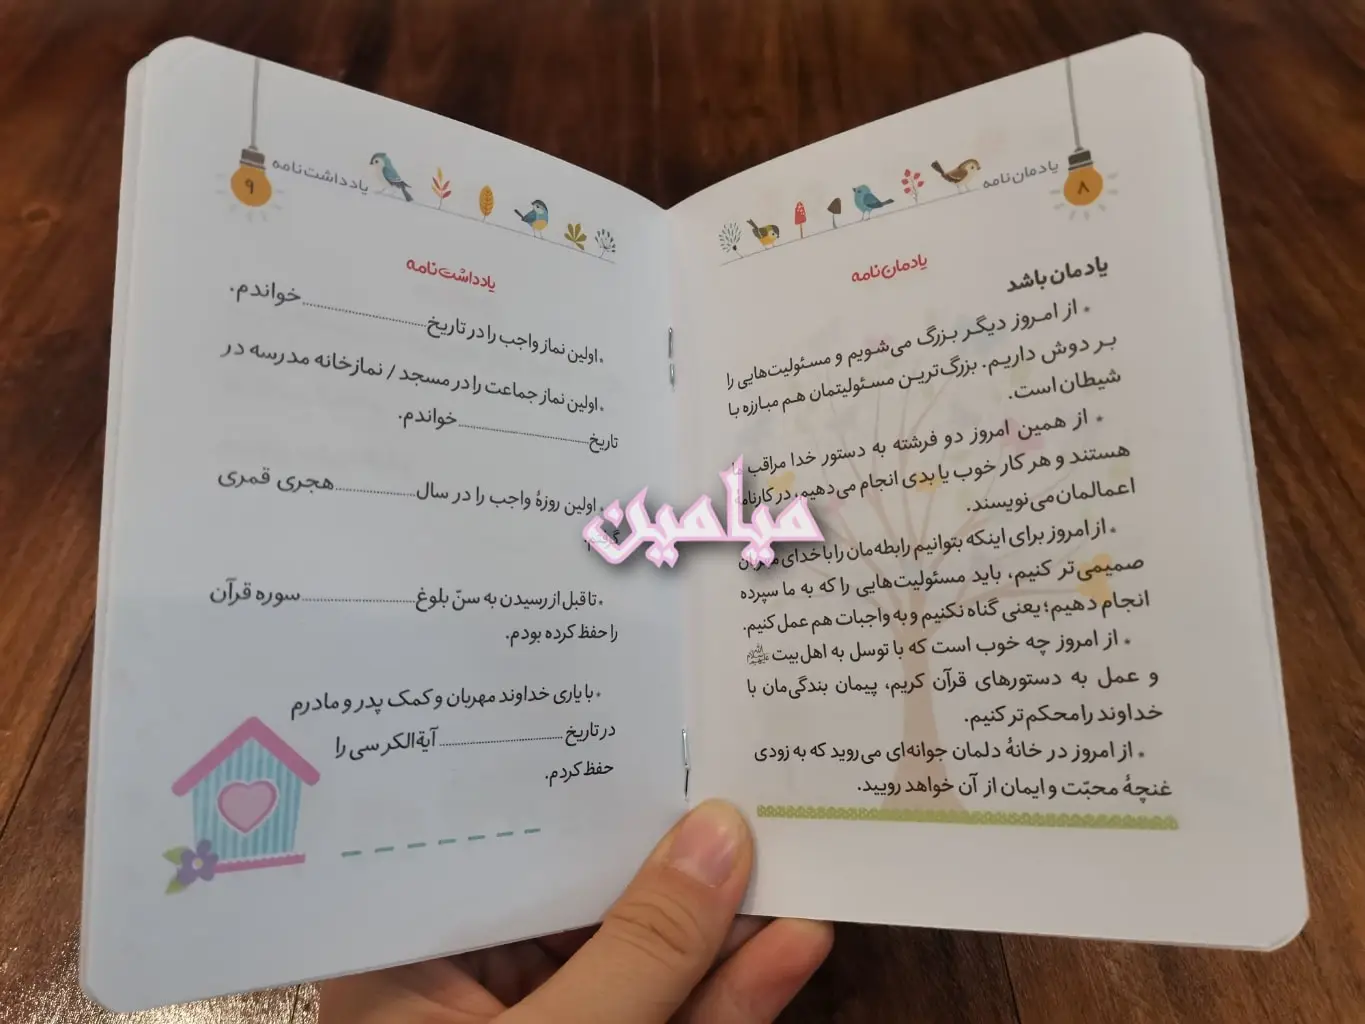 ۸
یادمان‌نامه
یادمان‌نامه
یادمان باشد
• از امروز دیگر بزرگ می‌شویم و مسئولیت‌هایی را
بر دوش داریم. بزرگ‌ترین مسئولیتمان هم مبارزه با
شیطان است.
• از همین امروز دو فرشته به دستور خدا مراقب ما
هستند و هر کار خوب یا بدی انجام می‌دهیم، در کارنامهٔ
اعمالمان می‌نویسند.
• از امروز برای اینکه بتوانیم رابطه‌مان را با خدای مهربان
صمیمی‌تر کنیم، باید مسئولیت‌هایی را که به ما سپرده
انجام دهیم؛ یعنی گناه نکنیم و به واجبات هم عمل کنیم.
• از امروز چه خوب است که با توسل به اهل‌بیت علیهم‌السلام
و عمل به دستورهای قرآن کریم، پیمان بندگی‌مان با
خداوند را محکم‌تر کنیم.
• از امروز در خانهٔ دلمان جوانه‌ای می‌روید که به زودی
غنچهٔ محبّت و ایمان از آن خواهد رویید.
یادداشت‌نامه
۹
یادداشت‌نامه
• اولین نماز واجب را در تاریخ .................... خواندم.
• اولین نماز جماعت را در مسجد / نمازخانه مدرسه در
تاریخ .................... خواندم.
• اولین روزهٔ واجب را در سال .................... هجری قمری
• تا قبل از رسیدن به سنّ بلوغ .................... سوره قرآن
را حفظ کرده بودم.
• با یاری خداوند مهربان و کمک پدر و مادرم
در تاریخ .................... آیةالکرسی را
حفظ کردم.
میامین